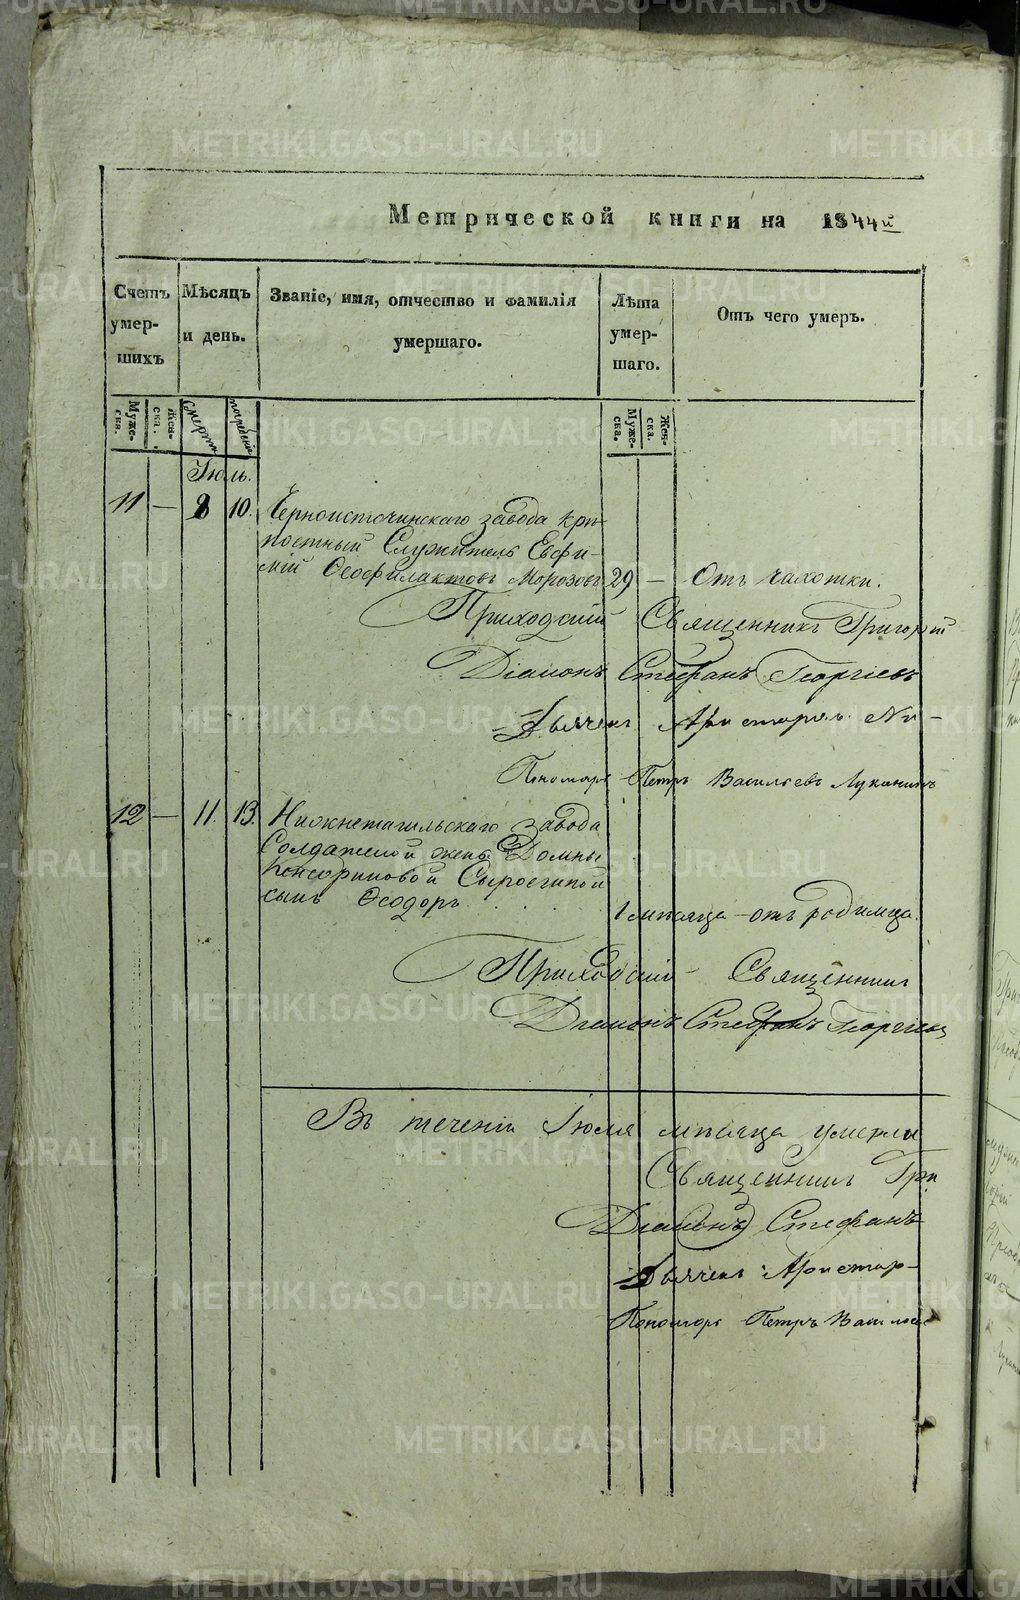 Метрической книги на 1844й
Счетъ умер- шихъ
Мѣсяцъ и день.
Званіе, имя, отчество и фамилія умершаго.
Лѣта умер- шаго.
Отъ чего умеръ.
Муже- ска.
Жен- ска.
смерти
погребенія
Муже- ска.
Жен- ска.
Іюль.
11 — 8 10. Черноисточинскаго завода крѣ-
постный Служитель Евфи-
мій Ѳеофилактовъ Морозовъ 29 — Отъ чахотки.
Приходскій Священникъ Григорій
Діаконъ Стефанъ Георгіевъ
Дьячекъ Аристархъ Ни-
Пономарь Петръ Васильевъ Луканинъ
12 — 11. 13. Нижнетагильскаго завода
Солдатской жены Домны
Сыросгиной
сынъ Ѳеодоръ
1 мѣсяца — отъ родимца.
Приходскій Священникъ
Діаконъ Стефанъ Георгіевъ
Въ теченіи Іюля мѣсяца умерлы
Священникъ Гри
Діаконъ Стефанъ
Дьячекъ Аристар-
Пономарь Петръ Василье
METRIKI.GASO-URAL.RU